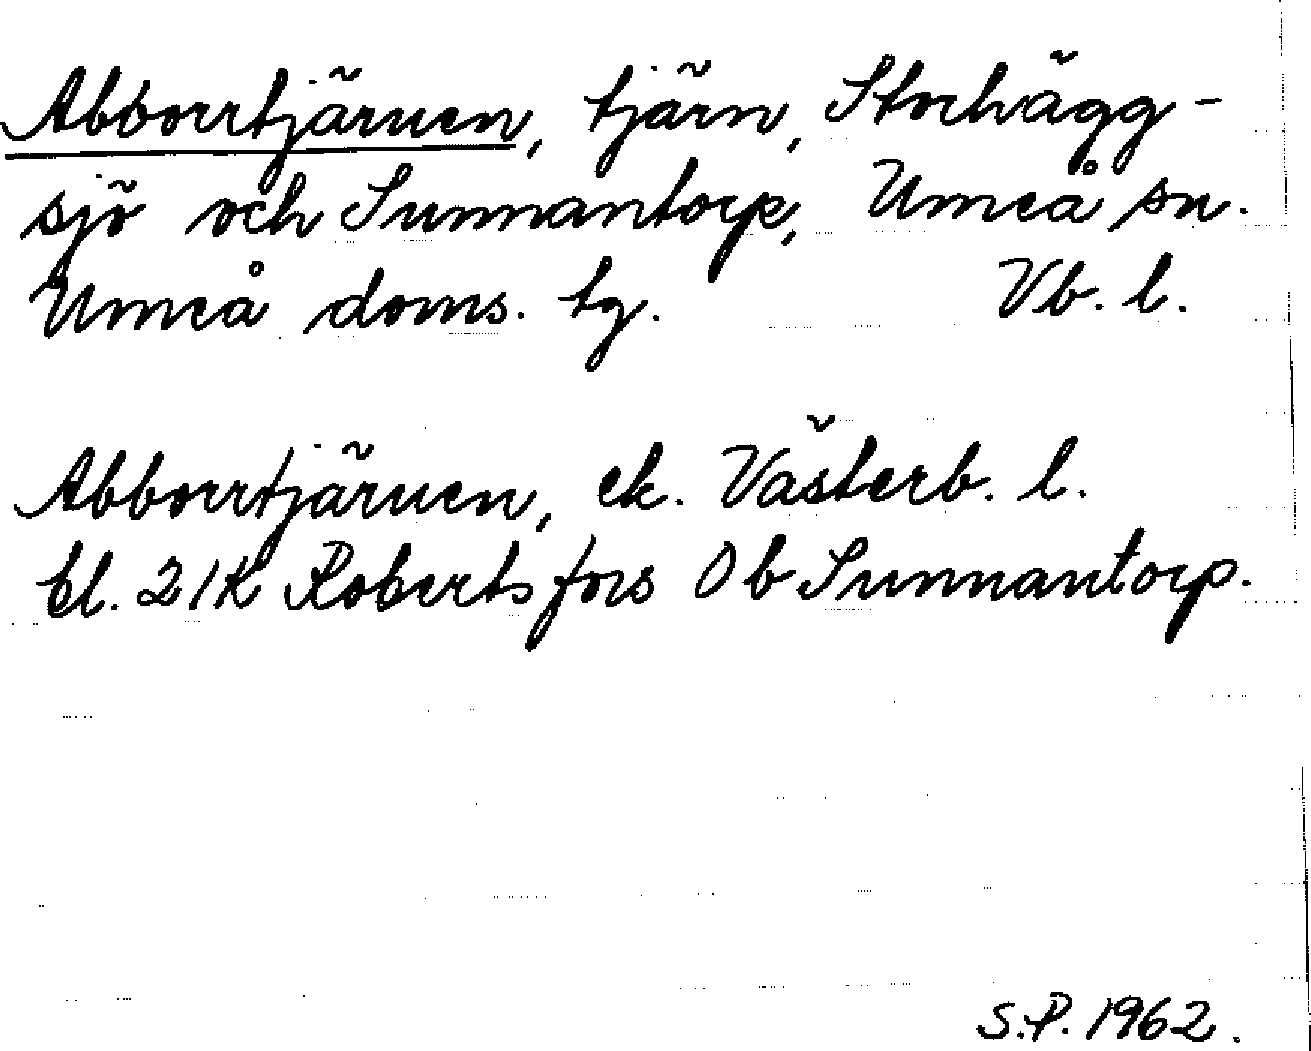 Abborrtjärnen, tjärn, Storhägg-
sjö och Sunnantorp, Umeå sn.
Umeå doms. tg. Vb. l.
Abborrtjärnen, ek. Västerb. l.
bl. 21K Robertsfors 0b Sunnantorp.
S.P. 1962.